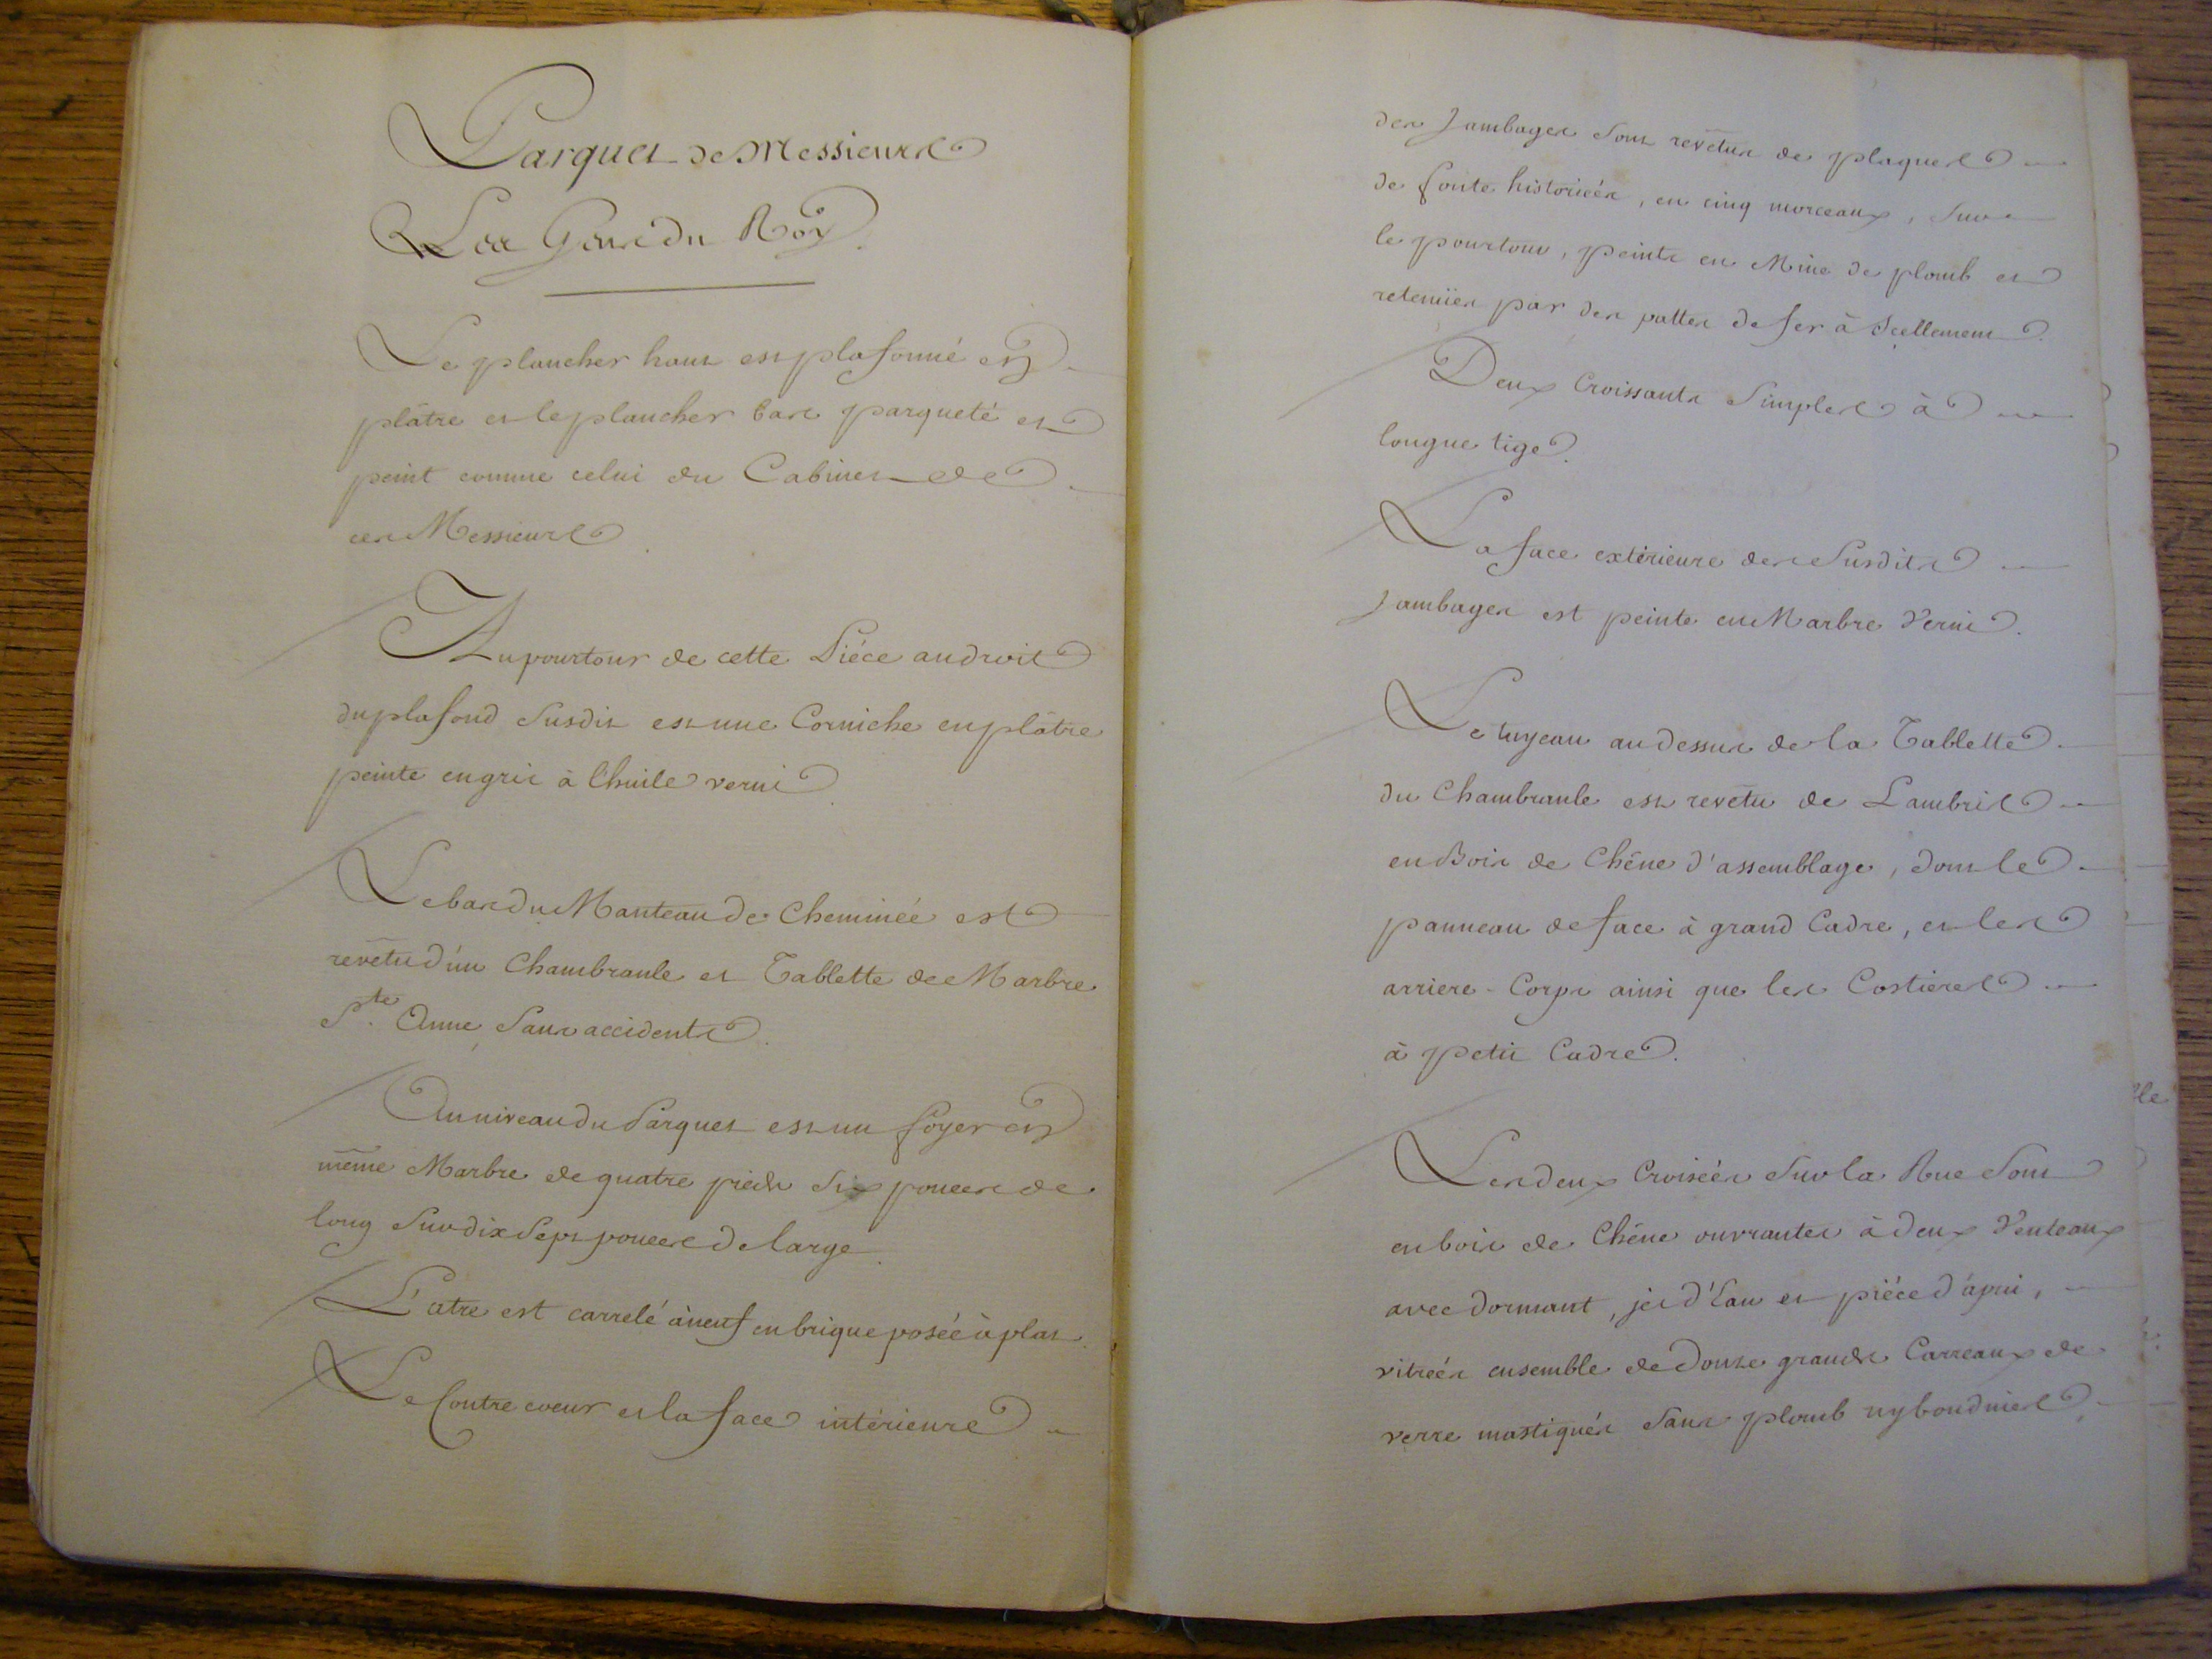 Parquet de Messieurs
Les Gens du Roy.
Le plancher haut est plafonné en
plâtre et le plancher bas parqueté et
peint comme celui du Cabinet de
ces Messieurs.
Au pourtour de cette Piéce au droit
du plafond Susdit est une Corniche en plâtre
peinte en gris à l'huile verni.
Le bas du Manteau de Cheminée est
revêtu d'un Chambranle et Tablette de Marbre
Ste. Anne, Sans accidents.
Au niveau du Parquet est un foyer en
même Marbre de quatre pieds Six pouces de
long Sur dix Sept pouces de large.
L'atre est carrelé à neuf en brique posée à plat.
Le Contre coeur et la face intérieure
des Jambages Sont revêtus de plaques
de fonte historiées, en cinq morceaux, Sur
le pourtour, peints en Mine de plomb et
retenües par des pattes de fer à Scellement.
Deux Croissants Simples à
longue tige.
La face extérieure des Susdits
Jambages est peinte en Marbre Verni.
Le tuyeau au dessus de la Tablette
du Chambranle est revêtu de Lambris
en Bois de Chêne d'assemblage, dont le
panneau de face à grand Cadre, et les
arriere-Corps ainsi que les Costieres
à petit Cadre.
Les deux Croisées Sur la Rue Sont
en bois de Chêne ouvrantes à deux Venteaux
avec dormant, jet d'Eau et piéce d'apui,
vitrées ensemble de douze grands Carreaux de
verre mastiqués Sans plomb ny boudines,